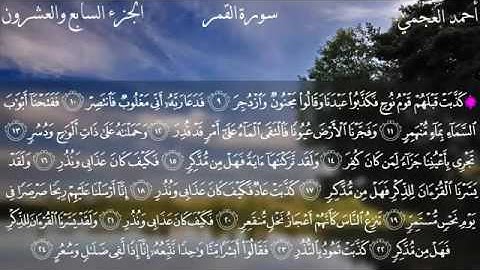 أحمد العجمي سورة القمر الجزء السابع والعشرون
كَذَّبَتْ قَبْلَهُمْ قَوْمُ نُوحٍ فَكَذَّبُوا۟ عَبْدَنَا وَقَالُوا۟ مَجْنُونٌ وَٱزْدُجِرَ ٩ فَدَعَا رَبَّهُۥٓ أَنِّى مَغْلُوبٌ فَٱنتَصِرْ ١٠ فَفَتَحْنَآ أَبْوَٰبَ
ٱلسَّمَآءِ بِمَآءٍ مُّنْهَمِرٍ ١١ وَفَجَّرْنَا ٱلْأَرْضَ عُيُونًا فَٱلْتَقَى ٱلْمَآءُ عَلَىٰٓ أَمْرٍ قَدْ قُدِرَ ١٢ وَحَمَلْنَٰهُ عَلَىٰ ذَاتِ أَلْوَٰحٍ وَدُسُرٍ ١٣
تَجْرِى بِأَعْيُنِنَا جَزَآءً لِّمَن كَانَ كُفِرَ ١٤ وَلَقَد تَّرَكْنَٰهَآ ءَايَةً فَهَلْ مِن مُّدَّكِرٍ ١٥ فَكَيْفَ كَانَ عَذَابِى وَنُذُرِ ١٦ وَلَقَدْ
يَسَّرْنَا ٱلْقُرْءَانَ لِلذِّكْرِ فَهَلْ مِن مُّدَّكِرٍ ١٧ كَذَّبَتْ عَادٌ فَكَيْفَ كَانَ عَذَابِى وَنُذُرِ ١٨ إِنَّآ أَرْسَلْنَا عَلَيْهِمْ رِيحًا صَرْصَرًا فِى
يَوْمِ نَحْسٍ مُّسْتَمِرٍّ ١٩ تَنزِعُ ٱلنَّاسَ كَأَنَّهُمْ أَعْجَازُ نَخْلٍ مُّنقَعِرٍ ٢٠ فَكَيْفَ كَانَ عَذَابِى وَنُذُرِ ٢١ وَلَقَدْ يَسَّرْنَا ٱلْقُرْءَانَ لِلذِّكْرِ
فَهَلْ مِن مُّدَّكِرٍ ٢٢ كَذَّبَتْ ثَمُودُ بِٱلنُّذُرِ ٢٣ فَقَالُوٓا۟ أَبَشَرًا مِّنَّا وَٰحِدًا نَّتَّبِعُهُۥٓ إِنَّآ إِذًا لَّفِى ضَلَٰلٍ وَسُعُرٍ ٢٤